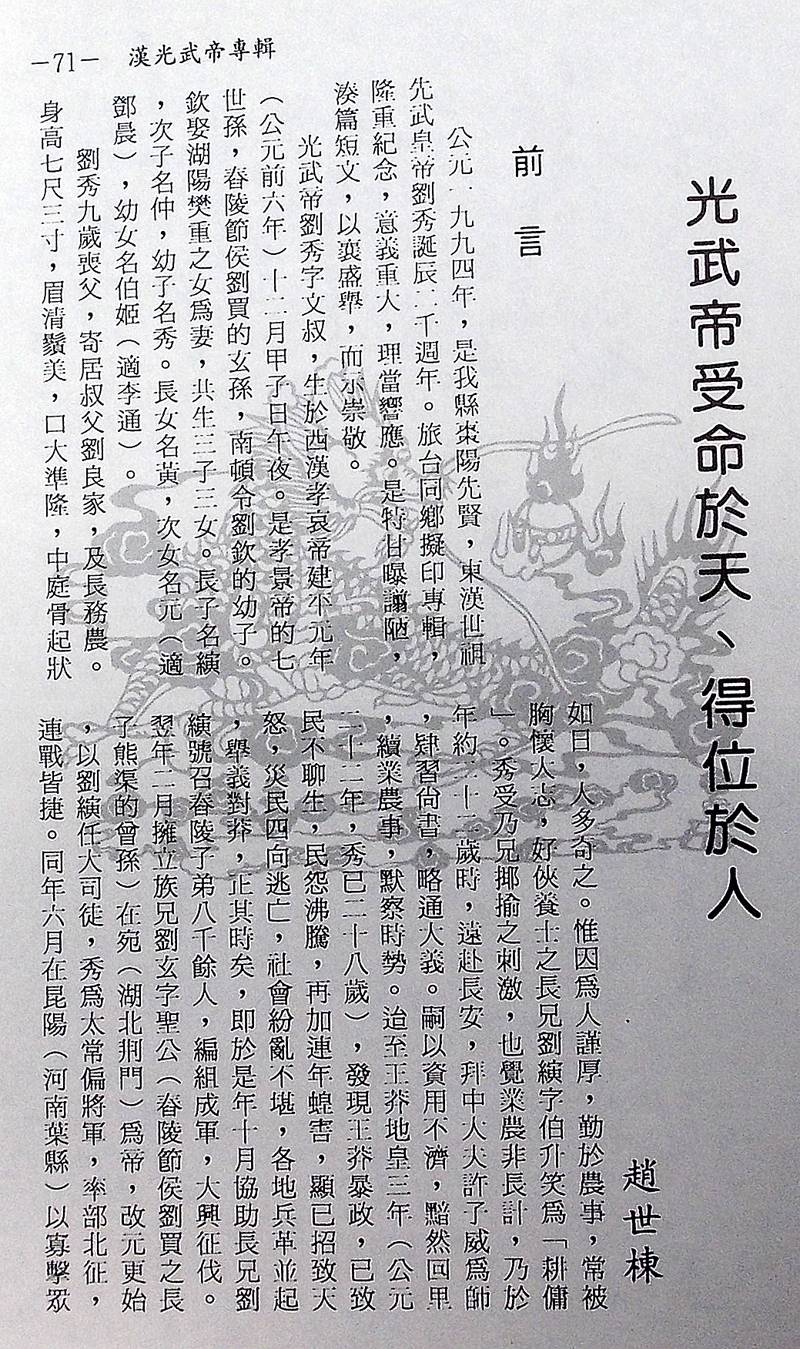 －71－ 漢光武帝專輯
光武帝受命於天、得位於人
趙世棟
前言
公元一九九四年，是我縣棗陽先賢，東漢世祖
先武皇帝劉秀誕辰二千週年。旅台同鄉擬印專輯，
隆重紀念，意義重大，理當響應。是特甘曝譾陋，
湊篇短文，以襄盛舉，而示崇敬。
光武帝劉秀字文叔，生於西漢孝哀帝建平元年
（公元前六年）十二月甲子日午夜。是孝景帝的七
世孫，舂陵節侯劉買的玄孫，南頓令劉欽的幼子。
欽娶湖陽樊重之女爲妻，共生三子三女。長子名縯
，次子名仲，幼子名秀。長女名黃，次女名元（適
鄧晨），幼女名伯姬（適李通）。
劉秀九歲喪父，寄居叔父劉良家，及長務農。
身高七尺三寸，眉清鬚美，口大準隆，中庭骨起狀
如日，人多奇之。惟因爲人謹厚，勤於農事，常被
胸懷大志，好俠養士之長兄劉縯字伯升笑爲「耕傭
」。秀受乃兄揶揄之刺激，也覺業農非長計，乃於
年約二十二歲時，遠赴長安，拜中大夫許子威爲師
，肄習尙書，略通大義。嗣以資用不濟，黯然回里
，續業農事，默察時勢。迨至王莽地皇三年（公元
二十二年，秀已二十八歲），發現王莽暴政，已致
民不聊生，民怨沸騰，再加連年蝗害，顯已招致天
怒，災民四向逃亡，社會紛亂不堪，各地兵革並起
，舉義對莽，正其時矣，即於是年十月協助長兄劉
縯號召舂陵子弟八千餘人，編組成軍，大興征伐。
翌年二月擁立族兄劉玄字聖公（舂陵節侯劉買之長
子熊渠的曾孫）在宛（湖北荆門）爲帝，改元更始
，以劉縯任大司徒，秀爲太常偏將軍，率部北征，
連戰皆捷。同年六月在昆陽（河南葉縣）以寡擊眾